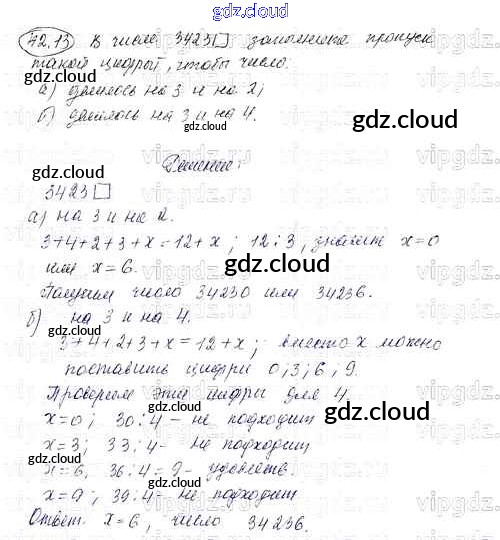 gdz.cloud
42.13 В числе 3423□ заполните пропуск
такой цифрой, чтобы число:
gdz.cloud
а) делилось на 3 и на 2;
б) делилось на 3 и на 4.
gdz.cloud
Решение:
gdz.cloud
3423□
а) на 3 и на 2.
3+4+2+3+x=12+x; 12⋮3, значит x=0
или x=6.
gdz.cloud
Получим число 34230 или 34236.
б) на 3 и на 4.
3+4+2+3+x=12+x; вместо x можно
поставить цифры 0; 3; 6; 9.
Проверяем эти цифры для 4.
gdz.cloud
x=0; 30:4 – не подходит
x=3; 33:4 – не подходит
gdz.cloud
x=6, 36:4=9 – удовлетв.
x=9; 39:4 – не подходит
gdz.cloud
Ответ. x=6, число 34236.
gdz.cloud